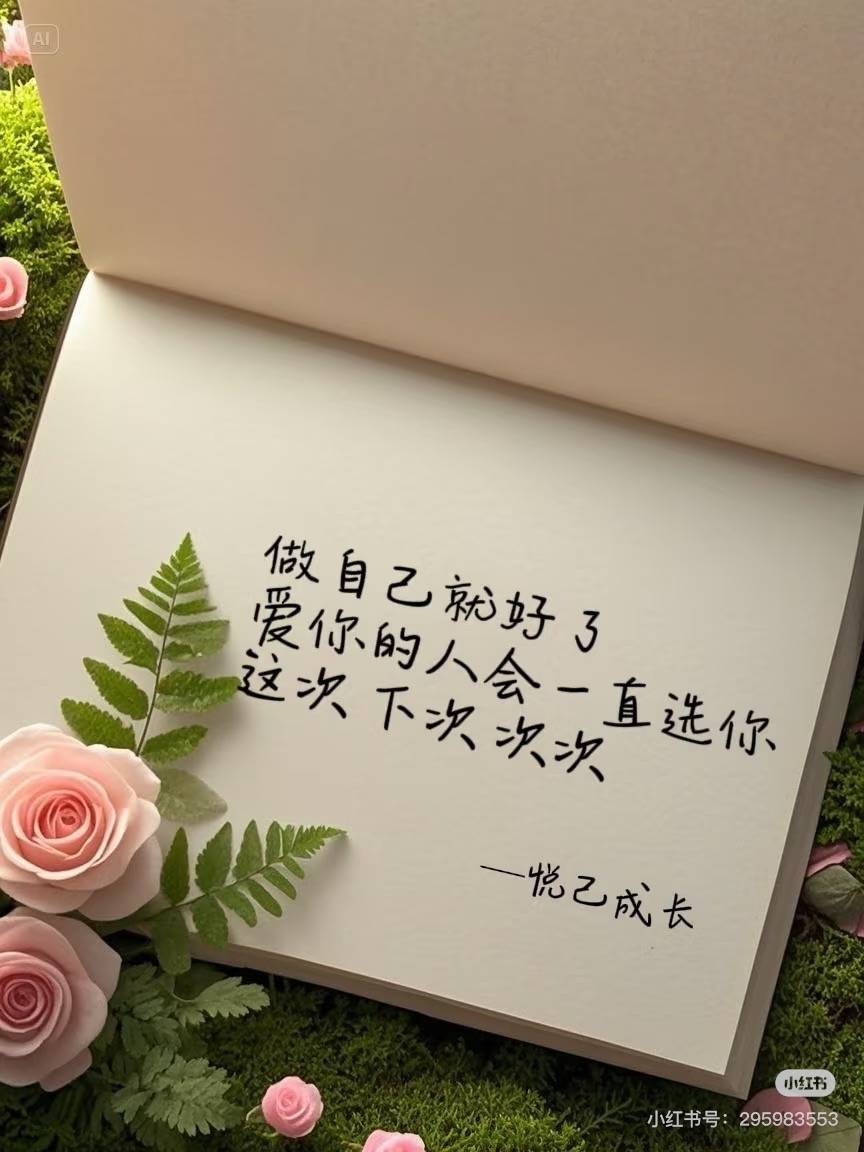 AI
做自己就好了
爱你的人会一直选你
这次 下次 次次
—悦己成长
小红书
小红书号：295983553